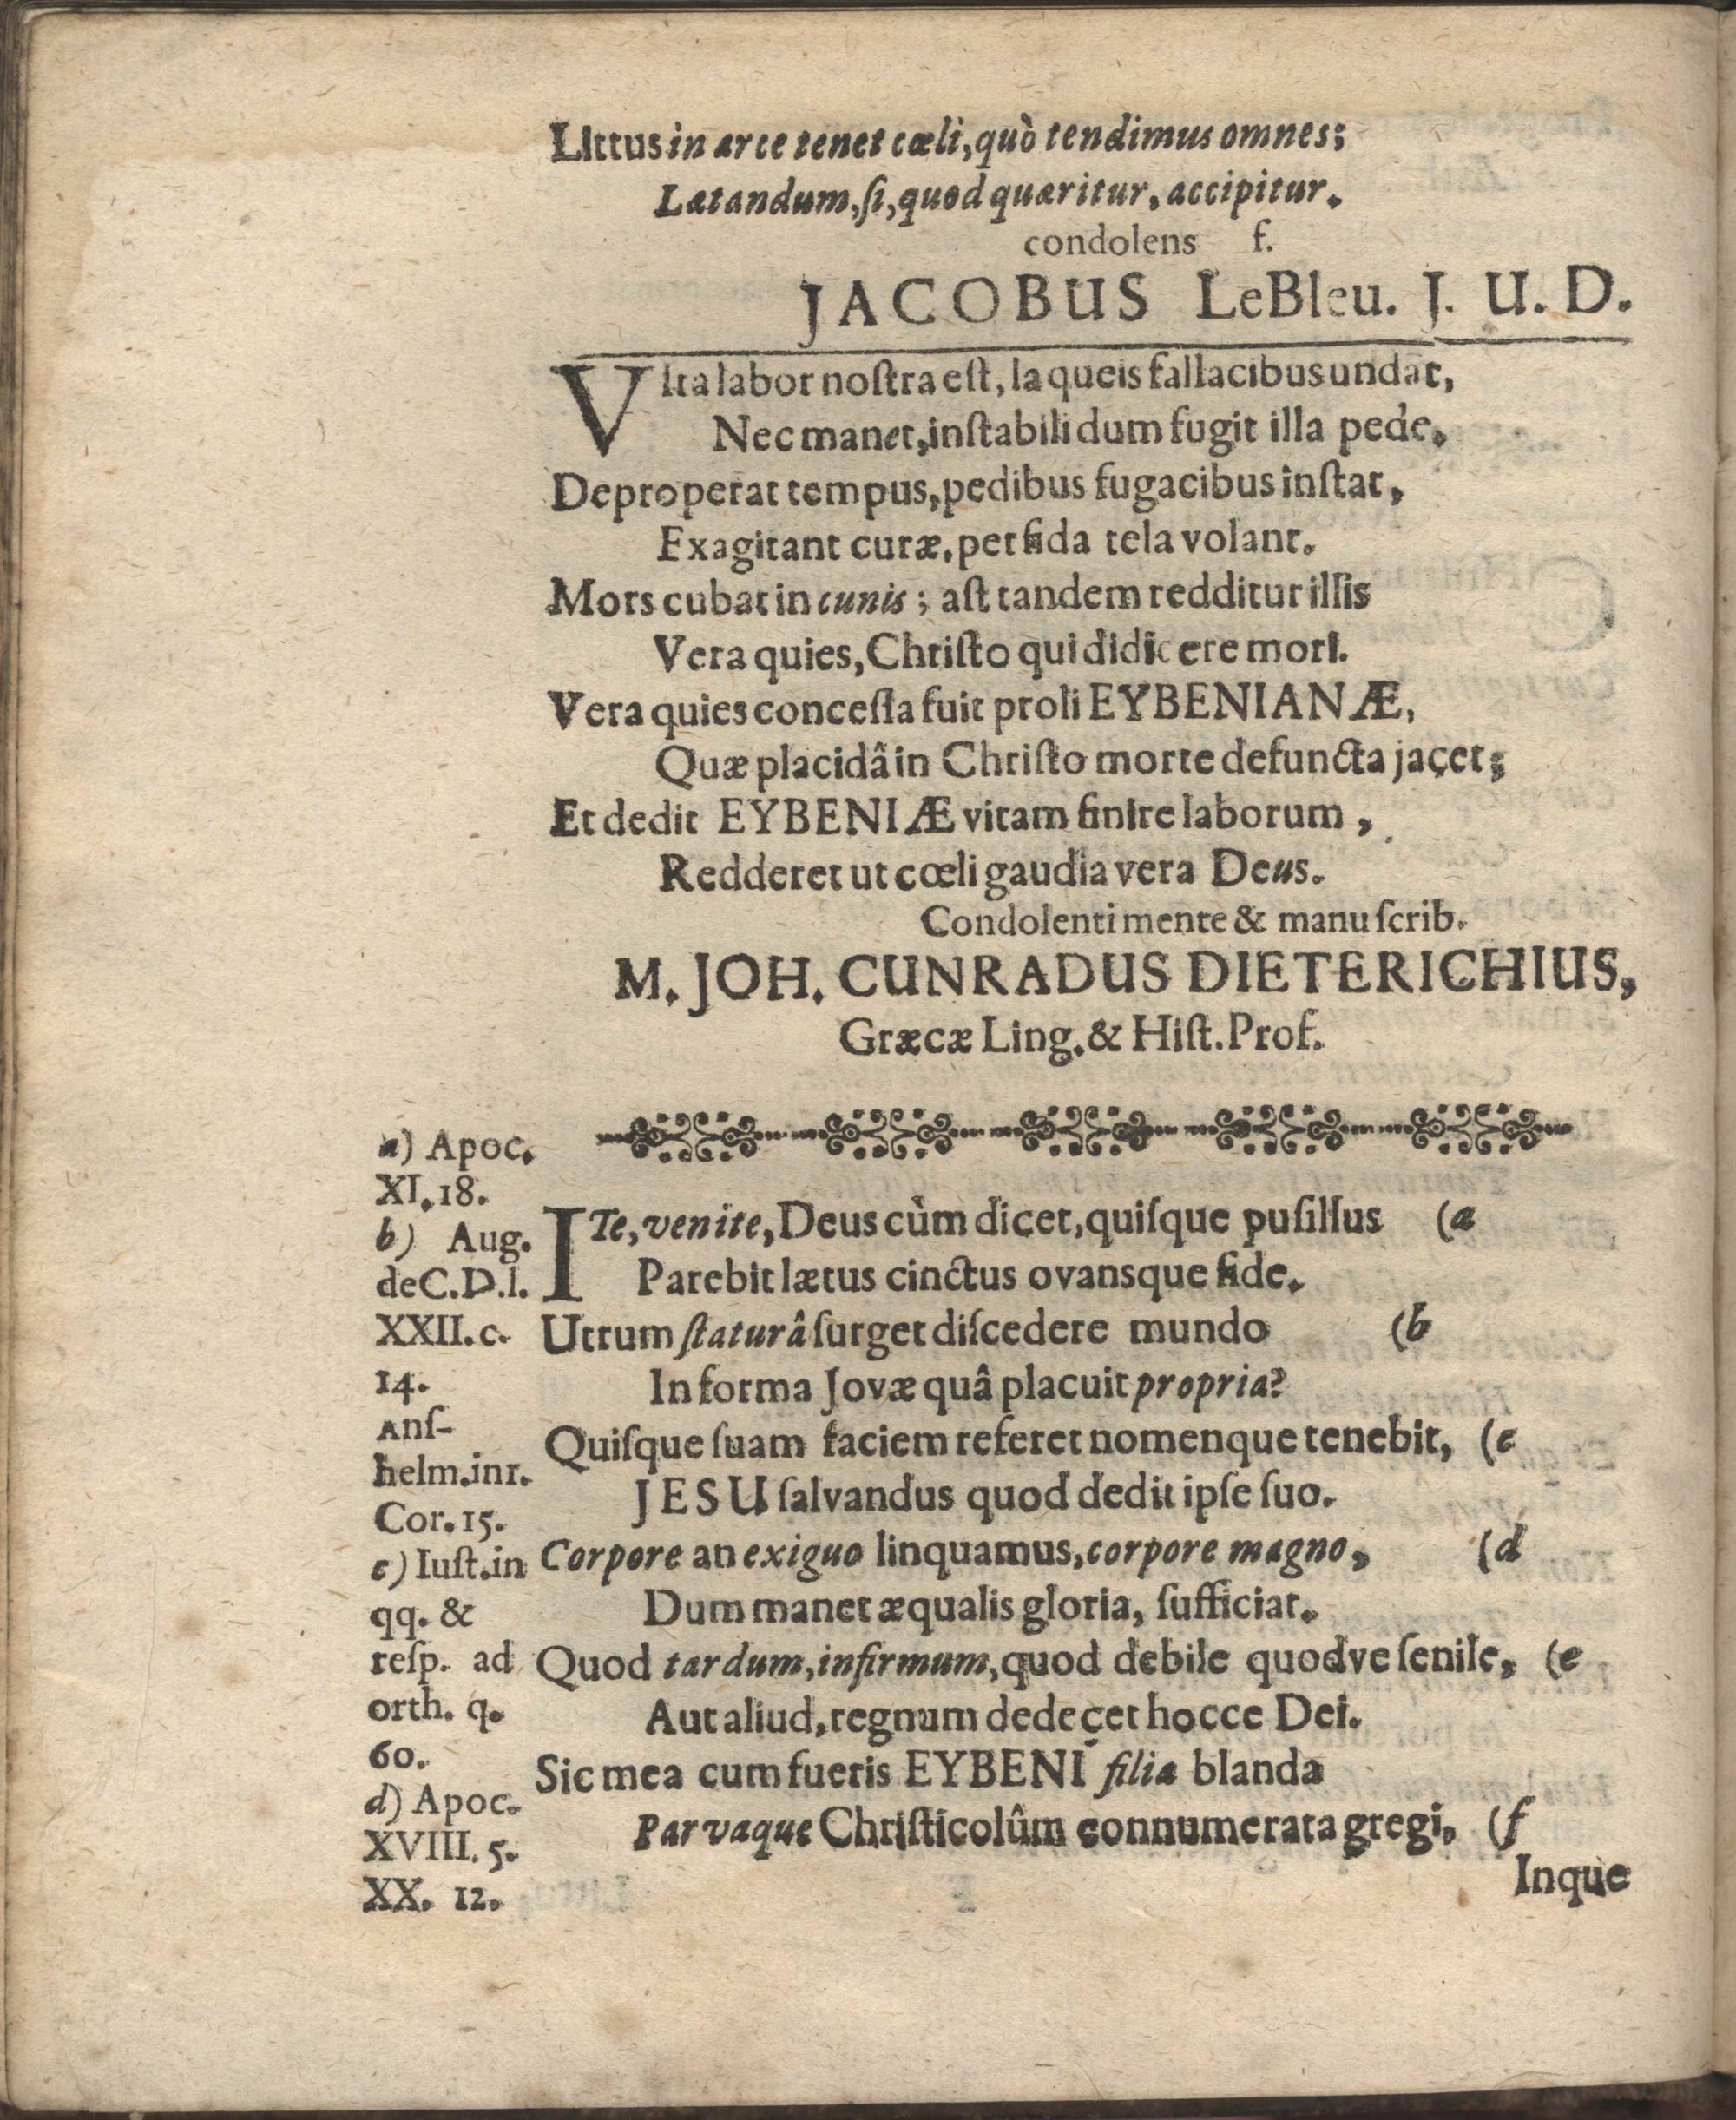 Littus in arce tenet cœli, quò tendimus omnes;
Lætandum, ſi, quod quæritur, accipitur.
condolens f.
JACOBUS LeBleu. J. U. D.
Vita labor noſtra eſt, laqueis fallacibus undat,
Nec manet, inſtabili dum fugit illa pede.
Deproperat tempus, pedibus fugacibus inſtat,
Exagitant curæ, perfida tela volant.
Mors cubat in cunis; aſt tandem redditur illis
Vera quies, Chriſto qui didicere mori.
Vera quies conceſſa fuit proli EYBENIANÆ,
Quæ placidâ in Chriſto morte defuncta jacet;
Et dedit EYBENIÆ vitam finire laborum,
Redderet ut cœli gaudia vera Deus.
Condolenti mente & manu ſcrib.
M. JOH. CUNRADUS DIETERICHIUS,
Græcæ Ling. & Hiſt. Prof.
ITe, venite, Deus cùm dicet, quiſque puſillus (a
Parebit lætus cinctus ovansque fide.
Utrum ſtaturâ ſurget diſcedere mundo (b
In forma Jovæ quâ placuit propria?
Quiſque ſuam faciem referet nomenque tenebit, (c
JESU ſalvandus quod dedit ipſe ſuo.
Corpore an exiguo linquamus, corpore magno, (d
Dum manet æqualis gloria, ſufficiat.
Quod tardum, infirmum, quod debile quodve ſenile, (e
Aut aliud, regnum dedecet hocce Dei.
Sic mea cum fueris EYBENI filia blanda
Parvaque Chriſticolûm connumerata gregi, (f
Inque
a) Apoc.
XI. 18.
b) Aug.
de C. D. l.
XXII. c.
14.
Anſ-
helm. in 1.
Cor. 15.
c) Iuſt. in
qq. &
reſp. ad
orth. q.
60.
d) Apoc.
XVIII. 5.
XX. 12.